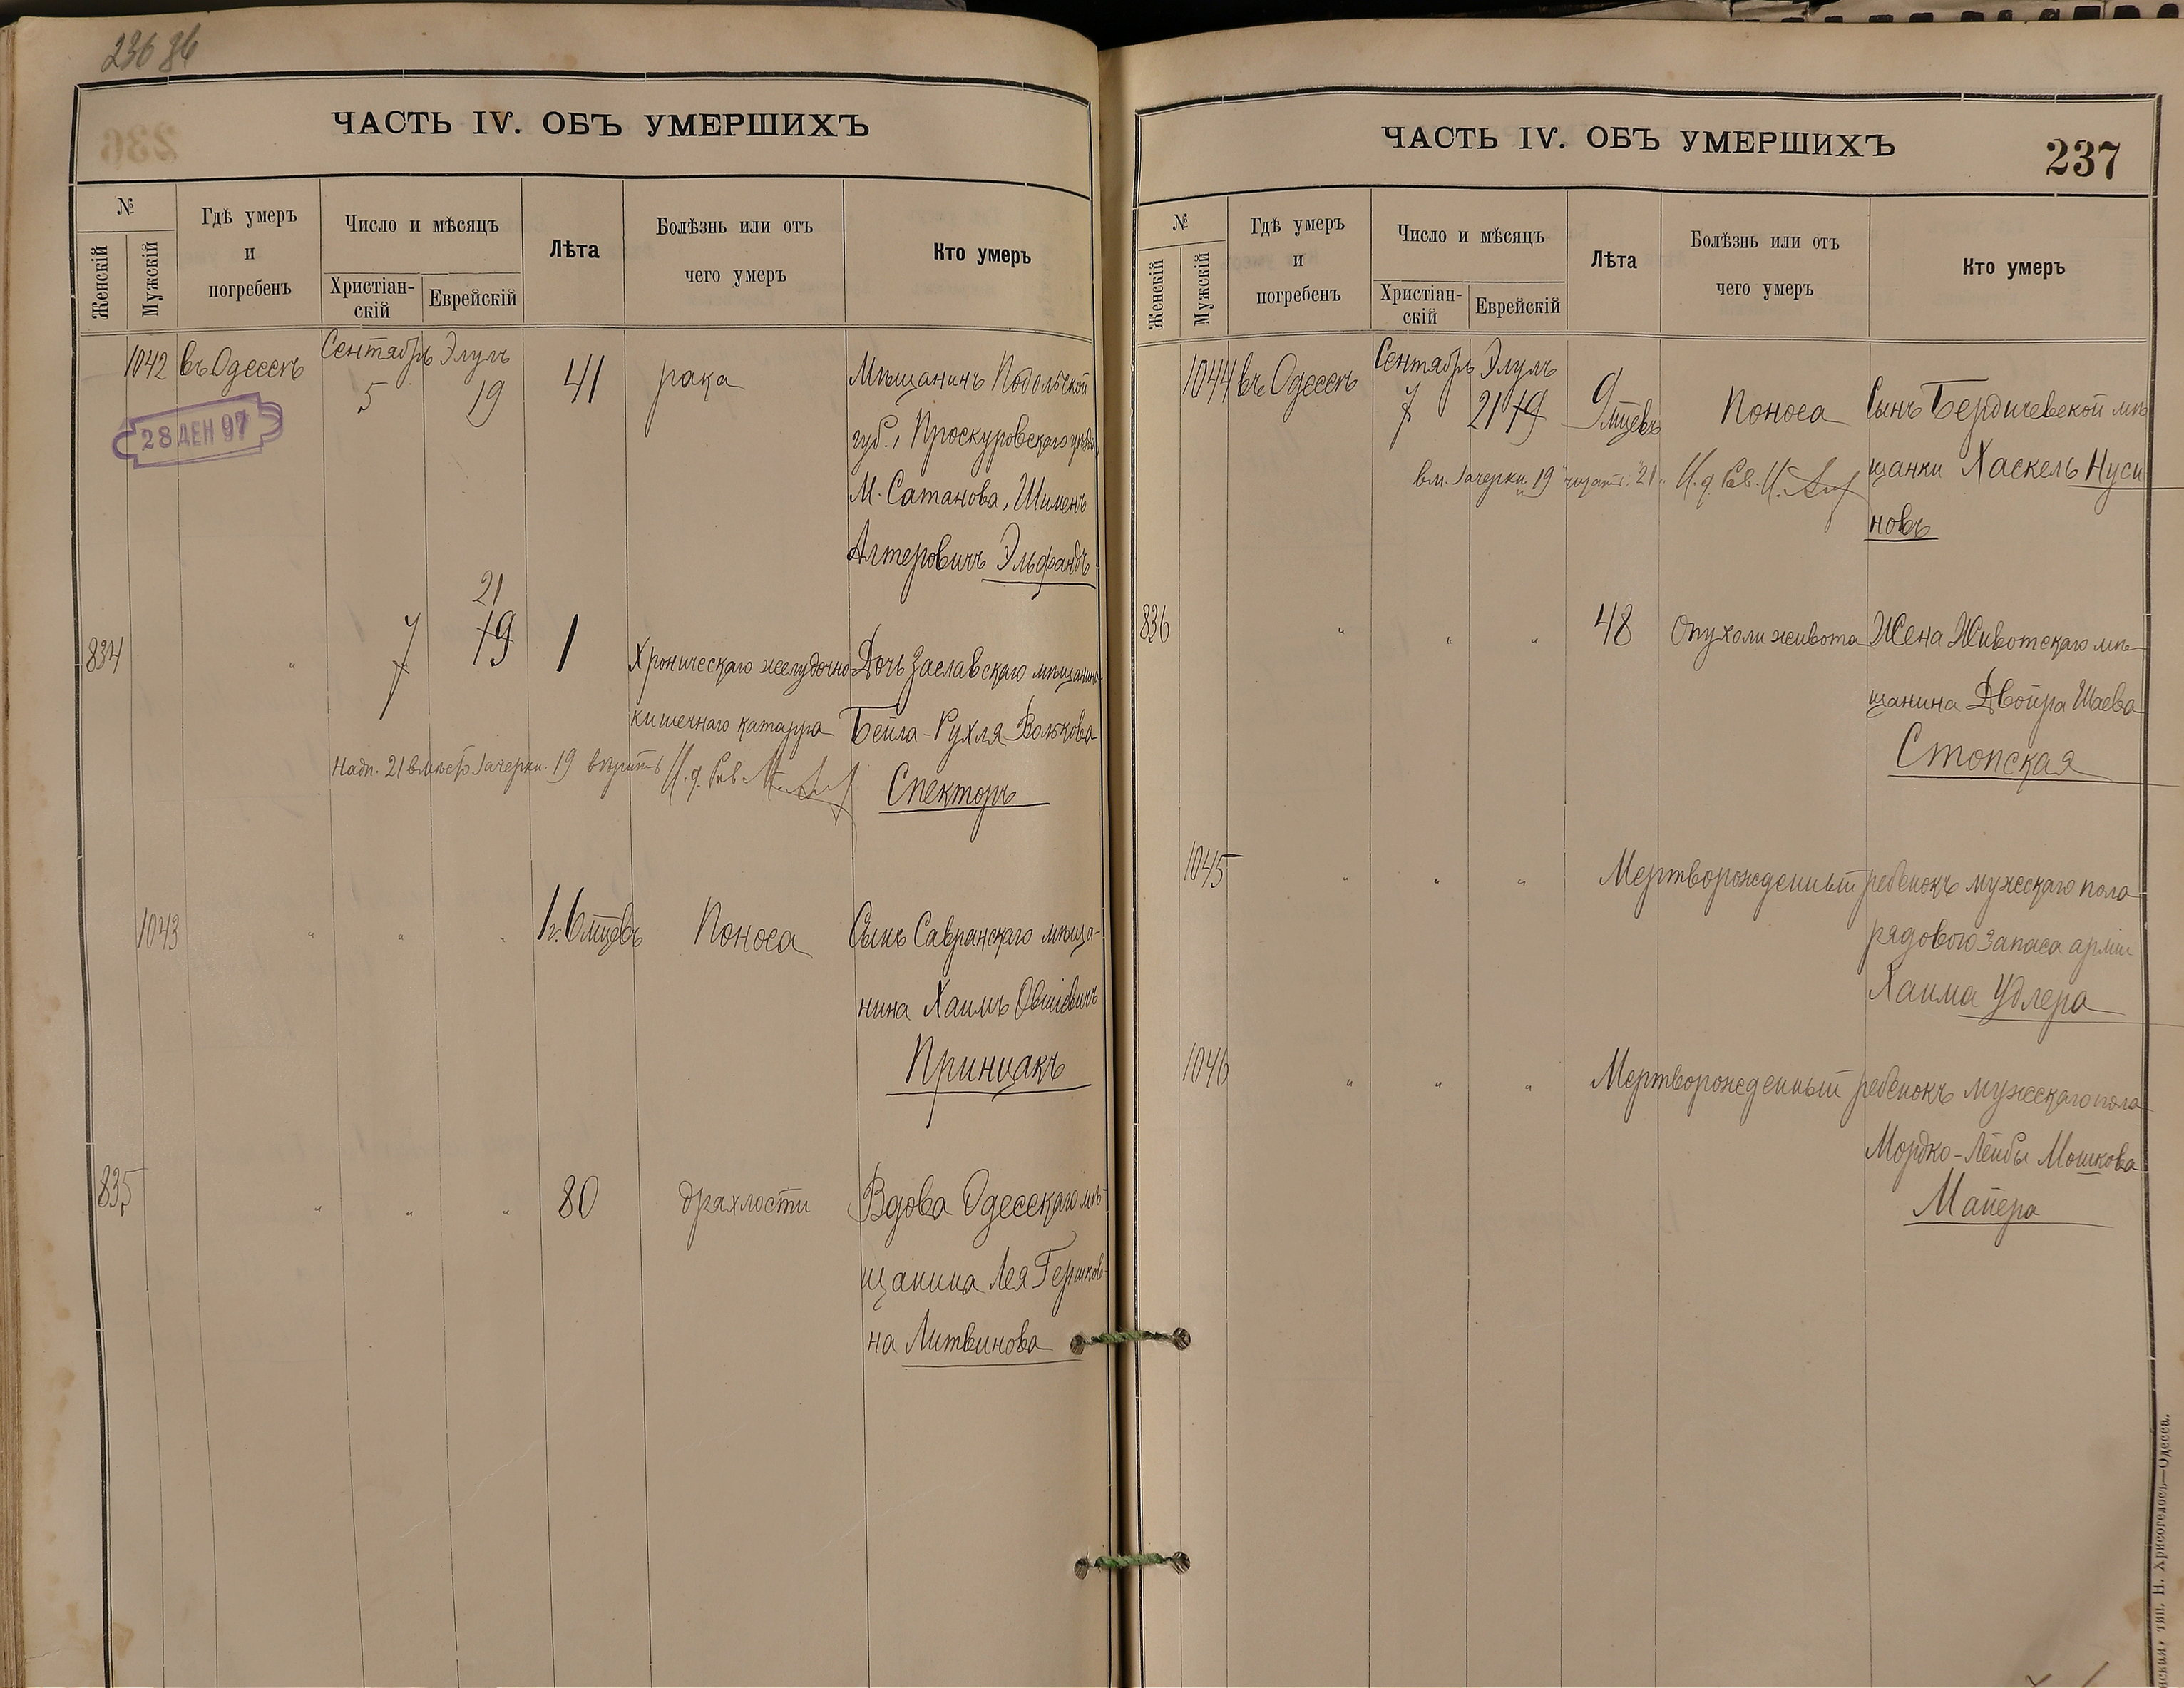 236 об
ЧАСТЬ IV. ОБЪ УМЕРШИХЪ
№
Женскій
Мужскій
Гдѣ умеръ
и
погребенъ
Число и мѣсяцъ
Христіан-
скій
Еврейскій
Лѣта
Болѣзнь или отъ
чего умеръ
Кто умеръ
1042 въ Одессѣ Сентябрь 5 Элулъ 19 41 рака Мѣщанинъ Подольской
губ., Проскуровскаго уѣзда
М. Сатанова, Шименъ
Алтеровичъ Эльфандъ
28 ДЕК 97
21
834 " 7 19 1 Хроническаго желудочно Дочь Заславскаго мѣщанина
кишечнаго катарра Бейла-Рухля Волькова
Надп. 21 вмѣсто зачеркн. 19 вѣрить И. д. Рав.
Спекторъ
1043 " " " 1 г. 6 мцевъ Поноса Сынъ Савранскаго мѣща-
нина Хаимъ Овшіевичъ
Принцакъ
835 " " " 80 дряхлости Вдова Одесскаго мѣ-
щанина Лея Гершков-
на Литвинова
ЧАСТЬ IV. ОБЪ УМЕРШИХЪ
237
№
Женскій
Мужскій
Гдѣ умеръ
и
погребенъ
Число и мѣсяцъ
Христіан-
скій
Еврейскій
Лѣта
Болѣзнь или отъ
чего умеръ
Кто умеръ
1044 въ Одессѣ Сентябрь 7 Элулъ 21 19 9 мцевъ Поноса Сынъ Бердичевской мѣ
щанки Хаскель Нуси
новъ
вм. зачеркн. 19 читать: "21" И. д. Рав.
836 " " " 48 Опухоли живота Жена Животскаго мѣ-
щанина Двойра Шаева
Стопская
1045 " " " Мертворожденный ребенокъ мужескаго пола
рядового запаса арміи
Хаима Удлера
1046 " " " Мертворожденный ребенокъ мужескаго пола
Мордко-Лейбы Мошкова
Майера
тип. Н. Хрисогелосъ—Одесса.